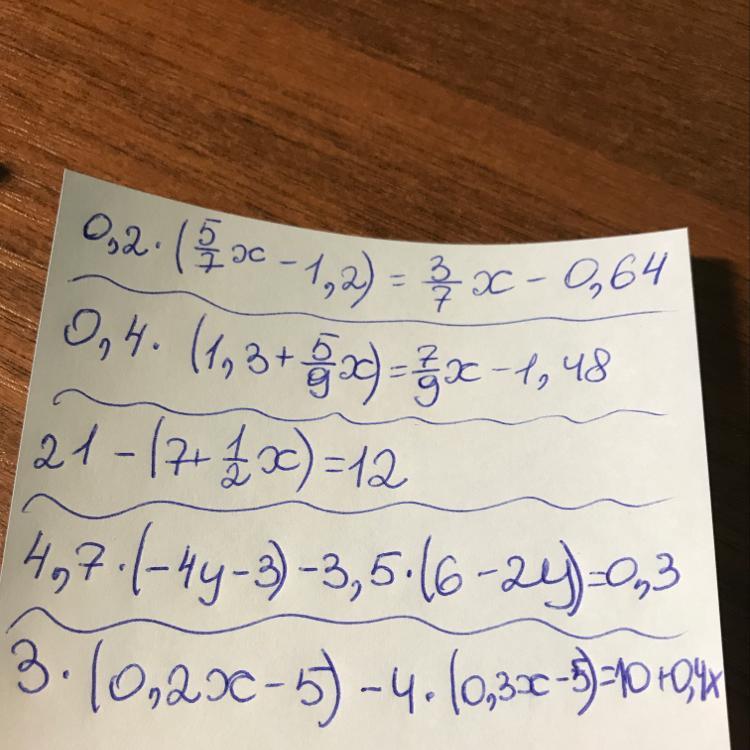 0,2·(5/7x-1,2)=3/7x-0,64
0,4·(1,3+5/9x)=7/9x-1,48
21-(7+1/2x)=12
4,7·(-4y-3)-3,5·(6-2y)=0,3
3·(0,2x-5)-4·(0,3x-5)=10+0,4x